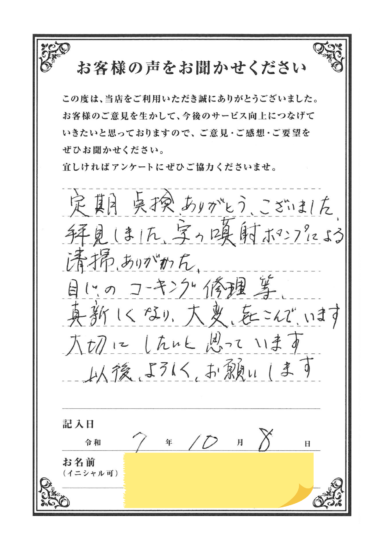 お客様の声をお聞かせください
この度は、当店をご利用いただき誠にありがとうございました。
お客様のご意見を生かして、今後のサービス向上につなげて
いきたいと思っておりますので、ご意見・ご感想・ご要望を
ぜひお聞かせください。
宜しければアンケートにぜひご協力くださいませ。
定期点検、ありがとう、ございました。
拝見しました、噴射ポンプによる
清掃、ありがかった、
目じのコーキング修理等、
真新しくなり、大変、よろこんで、います
大切にしたいと思っています
以後、よろしく、お願いします
記入日
令和 7 年 10 月 8 日
お名前
（イニシャル可）